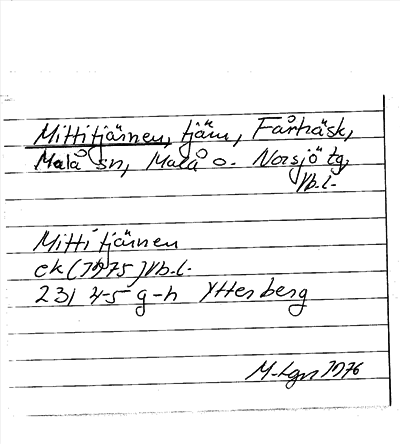 Mittitjärnen, tjärn, Fårträsk,
Malå sn, Malå o. Norsjö tg,
Vb.l.
Mittitjärnen
ek (1975) Vb.l.
23I 4-5 g-h Ytterberg
M-tgn 1976